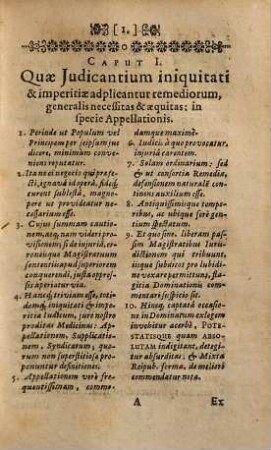 [ 1. ]
CAPUT I.
Quæ Judicantium iniquitati
& imperitiæ adplicantur remediorum,
generalis necessitas & æquitas; in
specie Appellationis.
1. Perinde ut Populum vel
Principem per se ipsum jus
dicere, minimùm conve-
nieni reputatur.
2. Ita ne si negotiis quis præ-
fecti, ignavâ id operâ, fide
fuerint, sublestâ, magno-
pere ut provideatur ne-
cessarium esse.
3. Cujus summam cautio-
nem, atq; nam videri pro-
visionem, si de injuria, er-
roniq; Magistratuum
sententiis apud superiorem
conquerendi, justa appres-
sis aperiatur via.
4. Hancq; triviam esse, toti-
demq; iniquitati & impe-
ritiæ Judicum, jure nostro
proditas Medicinas: Ap-
pellationem, Supplicatio-
nem, Syndicatum, quo-
rum non superstitiosa pro-
ponuntur definitiones.
5. Appellationem verò fre-
quentissimam, commen-
damque maximè.
6. Iudici, à quo provocatur,
injuriâ carentem.
7. Solam ordinarium; sed
& ut consortia Remedia,
defensionem naturalē con-
tinens auxilium esse.
8. Antiquissimisque tempo-
ribus, ac ubique ferè gen-
tium spectatum.
9. Et quo sine, liberam pas-
sim Magistratibus Iuris-
dictionem qui tribuunt,
iisque subditos pro lubidi-
ne vexare permittunt, fla-
gitia Dominationis com-
mentari suspecti sit.
10. Hincq; captatâ occasio-
ne in Dominatum exlegem
invehitur acerbè, POTE-
STATISQUE quam ABSO-
LUTAM indigitant, detegi-
tur absurditas; & Mixta
Reipub. forma, de meliori
commendatur nota.
A Ex